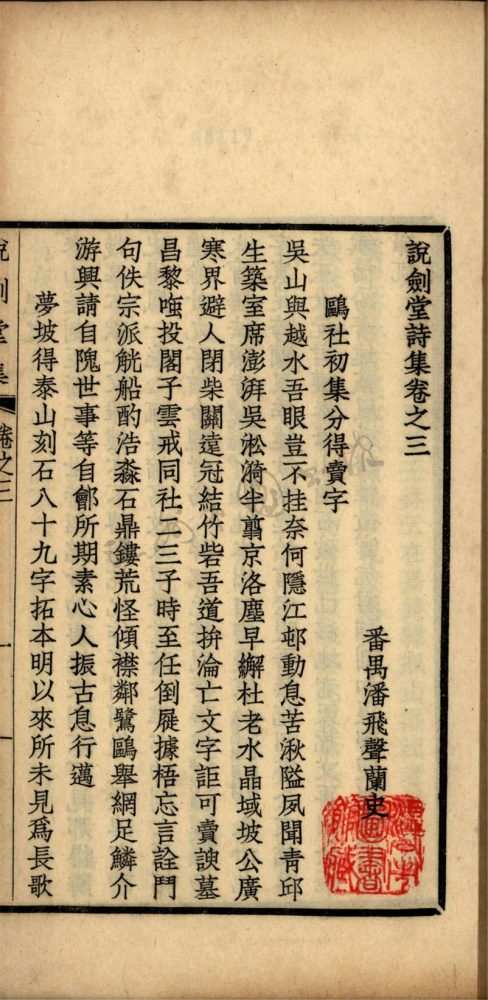 說劍堂詩集卷之三
番禺潘飛聲蘭史
鷗社初集分得賣字
吳山與越水吾眼豈不挂奈何隱江邨動息苦湫隘夙聞青邱
生築室席澎湃吳淞漪半翦京洛塵早繲杜老水晶域坡公廣
寒界避人閉柴關遠冠結竹砦吾道拚淪亡文字詎可賣諛墓
昌黎嗤投閣子雲戒同社二三子時至任倒屣據梧忘言詮鬥
句佚宗派觥船酌浩淼石鼎鏤荒怪傾襟鄰鷺鷗舉網足鱗介
游興請自隗世事等自鄶所期素心人振古息行邁
夢坡得泰山刻石八十九字拓本明以來所未見爲長歌
說劍堂集
卷之三
一